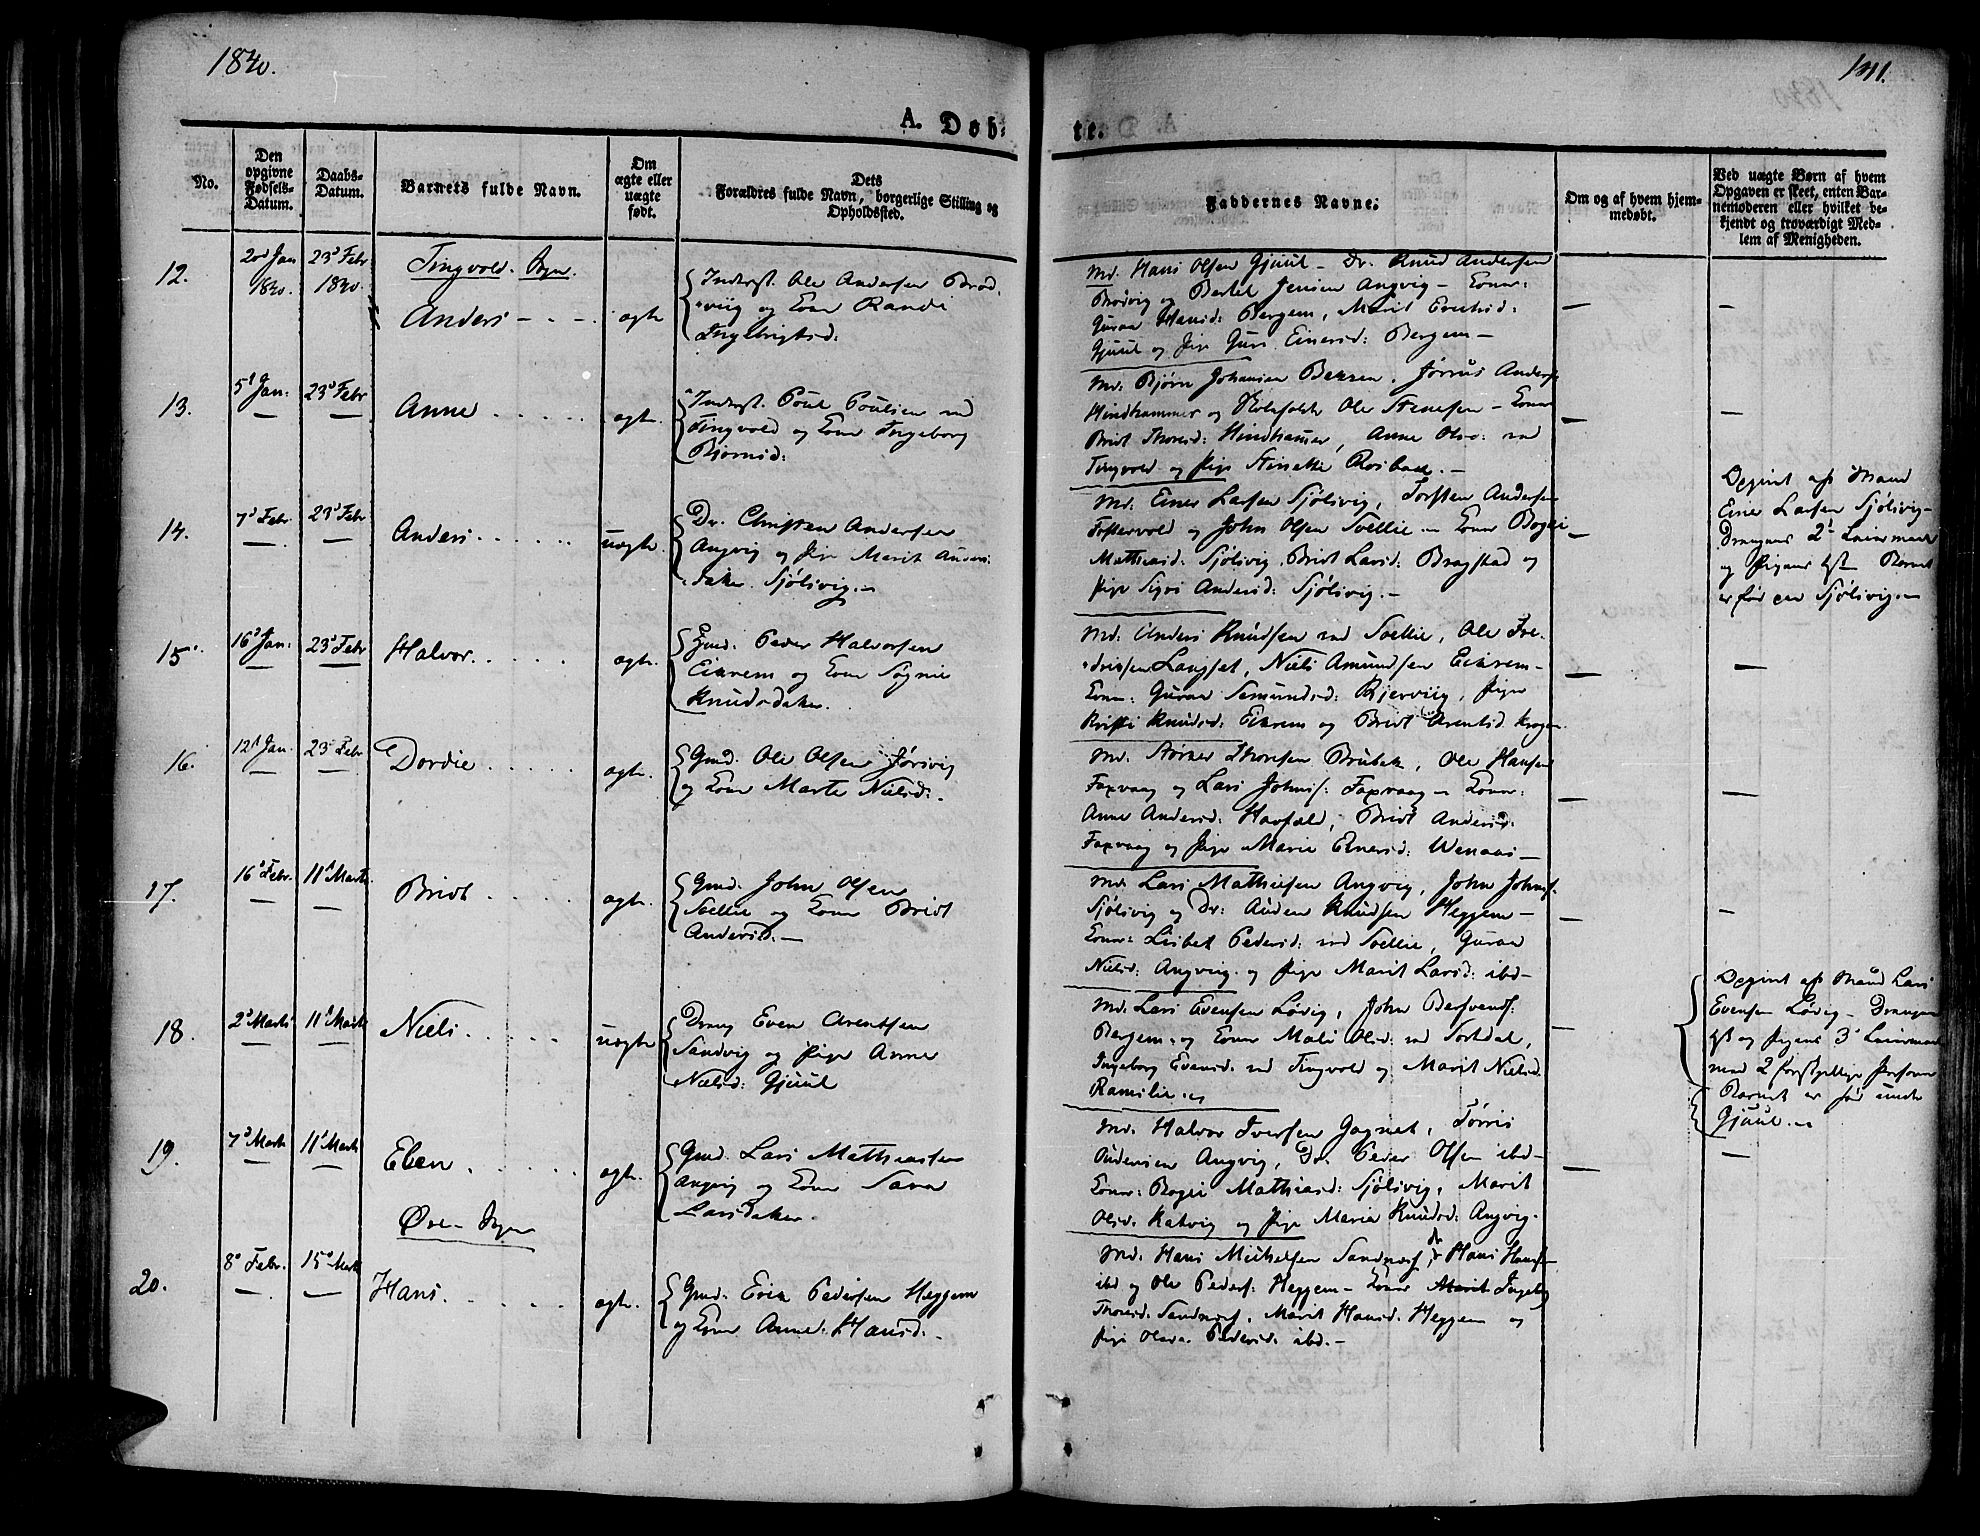 1840.
141.
A. Døb-
te.
No.
Den
opgivne
Fødsels-
Datum.
Daabs-
Datum.
Barnets fulde Navn.
Om
ægte eller
uægte
født.
Dets
Forældres fulde Navn, borgerlige Stilling og
Opholdssted.
Faddernes Navne.
Om og af hvem hjem-
medøbt.
Ved uægte Børn af hvem
Opgaven er skeet, enten Bar-
nemoderen eller hvilket be-
kjendt og troværdigt Med-
lem af Menigheden.
Tingvold Sogn
12.
2d Jan
1840.
23d Febr
1840.
Anders
ægte
Inderst. Ole Andersen Brød-
viig og Kone Randi
Ingebrigtsd:
Md. Hans Olsen Gjuul – Dr. Knud Andersen
Brødvig og Bertel Jensen Angvig – Konr:
Guraa Hansd: Bergem, Marit Erichsd:
Gjuul og Pige Guri Einersd: Bergem –
13.
5d Jan.
23d Febr
Anne
ægte
Inderst. Poul Poulsen ved
Tingvold og Kone Ingeborg
Biørnsd:
Md: Bjørn Johansen Beksen, Jørrus Anders
Hindhammer og Skoleholder Ole Stenesen – Konr
Brit Thoresd: Hindhamer, Anne Olsd: ved
Tingvold og Pige Rosbach. –
14.
7d Febr
23d Febr
Anders
uægte
Dr. Christen Andersen
Angvig og Pige Marit Anders-
dater Sjølsvig. –
Md. Einer Larsen Sjølsvig, Torsten Andersen
og John Olsen Soellie – Konr Bogei
Mathiasd: Sjølsvig, Brit Larsd: Bragstad og
Pige Sigri Andersd: Sjølsvig. –
Opgivet af Mand
Einer Larsen Sjølsvig –
Drengens 2d Leiermaal
og Pigens 1st Barnet
er født paa Sjølsvig. –
15.
16d Jan:
23d Febr
Halvor
ægte
Gmd. Peder Halvorsen
Eikrem og Kone Sognie
Knudsdater.
Md: Anders Knudsen ved Soellie, Ole Fre-
driksen Langset, Niels Amundsen Eikrem –
Konr: Guraa Semundsd: Bjerviig, Piger
Kristi Knudsd: Eikrem og Brit Arentsd. Krogen
16.
12d Jan.
23d Febr
Dordie
ægte
Gmd. Ole Olsen Jørsvig
og Kone Marte Nielsd:
Md. Størker Thoresen Brubek, Ole Hansen
Faxvaag og Lars Johns: Faxvaag – Konr:
Anne Andersd: Havfald, Brit Andersd:
Faxvaag og Pige Marie Einersd: Wenaas –
17.
16d Febr.
11d Marts.
Brit
ægte
Gmd. John Olsen
Soellie og Kone Brit
Andersd. –
Md. Lars Mathiesen Angvig, John Johns:
Sjølsvig og Dr: Auden Knudsen Heggem –
Konr: Lisbet Pedersd: ved Soellie, Guraa
Nielsd: Angvig og Pige Marit Larsd: ibd –
18.
2d Marts
11d Marts
Niels
uægte
Dreng Even Arentsen
Sandvig og Pige Anne
Nielsd: Gjuul
Md: Lars Evensen Løvig, John
Bergem og Konr Mali Olsd: ved Sortdal,
Ingeborg Evensd. ved Tingvold og Marit Nielsd.
Ramslie.
Opgivet af Mand Lars
Evensen Løvig – Drengens
1st og Pigens 3d Leiermaal
med 2 forskjellige Personer
Barnet er født under
Gjuul. –
19.
7d Marts
11d Marts
Eben
ægte
Gmd. Lars Mathiassen
Angvig og Kone Sara
Larsdater.
Md. Halvor Iversen Gagnat, Tørris
Andersen Angvig, Dr. Peder Olsen ibd –
Konr: Bogei Mathiasd: Sjølsvig, Marit
Olsd: Katvig og Pige Maria Knudsd: Angvig.
Øre Sogn
20.
8d Febr.
15d Marts
Hans
ægte
Gmd. Erik Pedersen Heggem
og Kone Anne Hansd: –
Md: Hans Michelsen Sandnæs, Dr Hans Hansen
ibd og Ole Peders: Heggem – Konr Marit Ingebr
Thoresd: Sandnæs, Marit Hansd: Heggem og
Pige Olava Pedersd: ibd. –